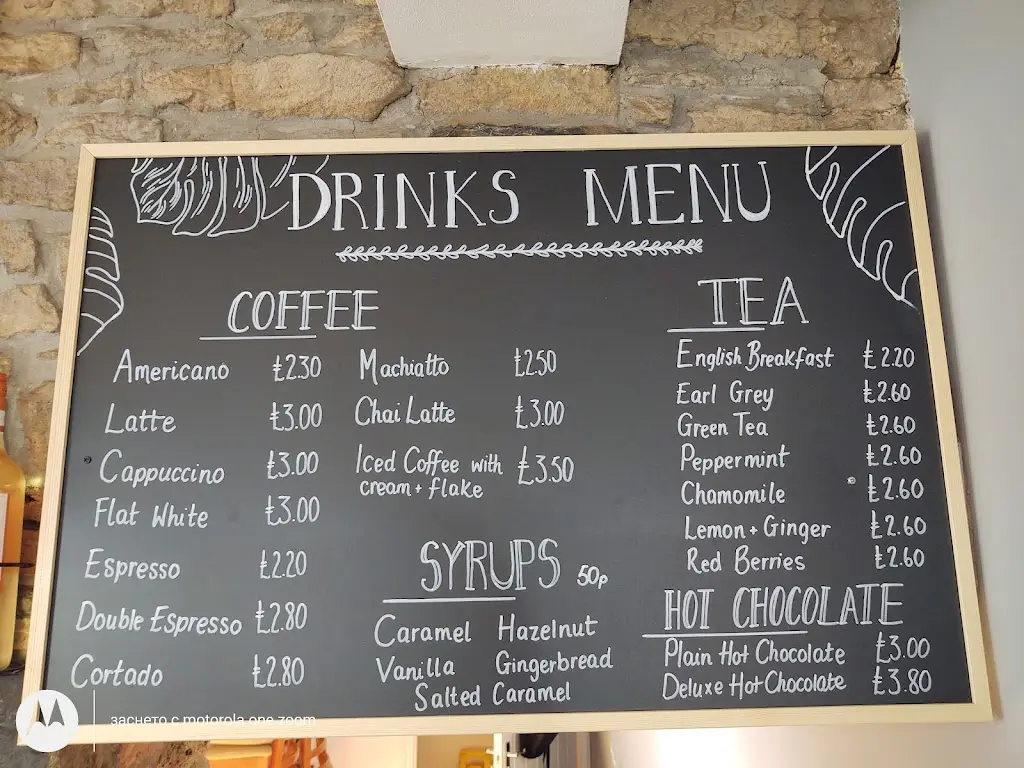 DRINKS MENU
COFFEE
Americano £2.30
Latte £3.00
Cappuccino £3.00
Flat White £3.00
Espresso £2.20
Double Espresso £2.80
Cortado £2.80
Machiatto £2.50
Chai Latte £3.00
Iced Coffee with £3.50
cream + flake
SYRUPS 50p
Caramel Hazelnut
Vanilla Gingerbread
Salted Caramel
TEA
English Breakfast £2.20
Earl Grey £2.60
Green Tea £2.60
Peppermint £2.60
Chamomile £2.60
Lemon + Ginger £2.60
Red Berries £2.60
HOT CHOCOLATE
Plain Hot Chocolate £3.00
Deluxe Hot Chocolate £3.80
заснето с motorola one zoom